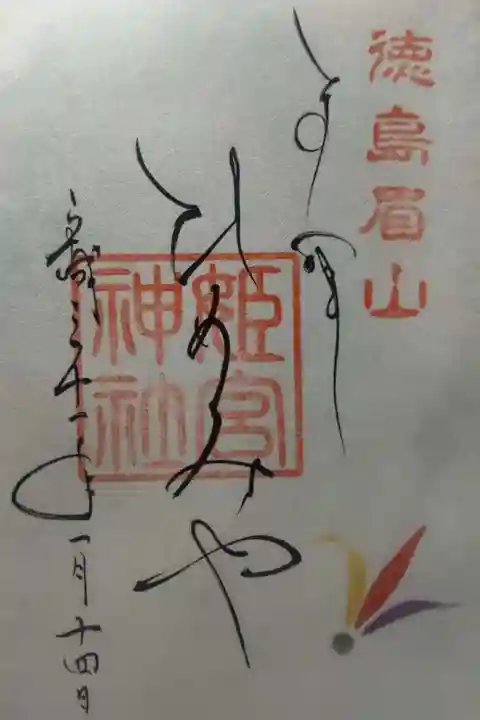 徳島眉山
ひめみや
姫宮
神社
平成三十一年一月十四日